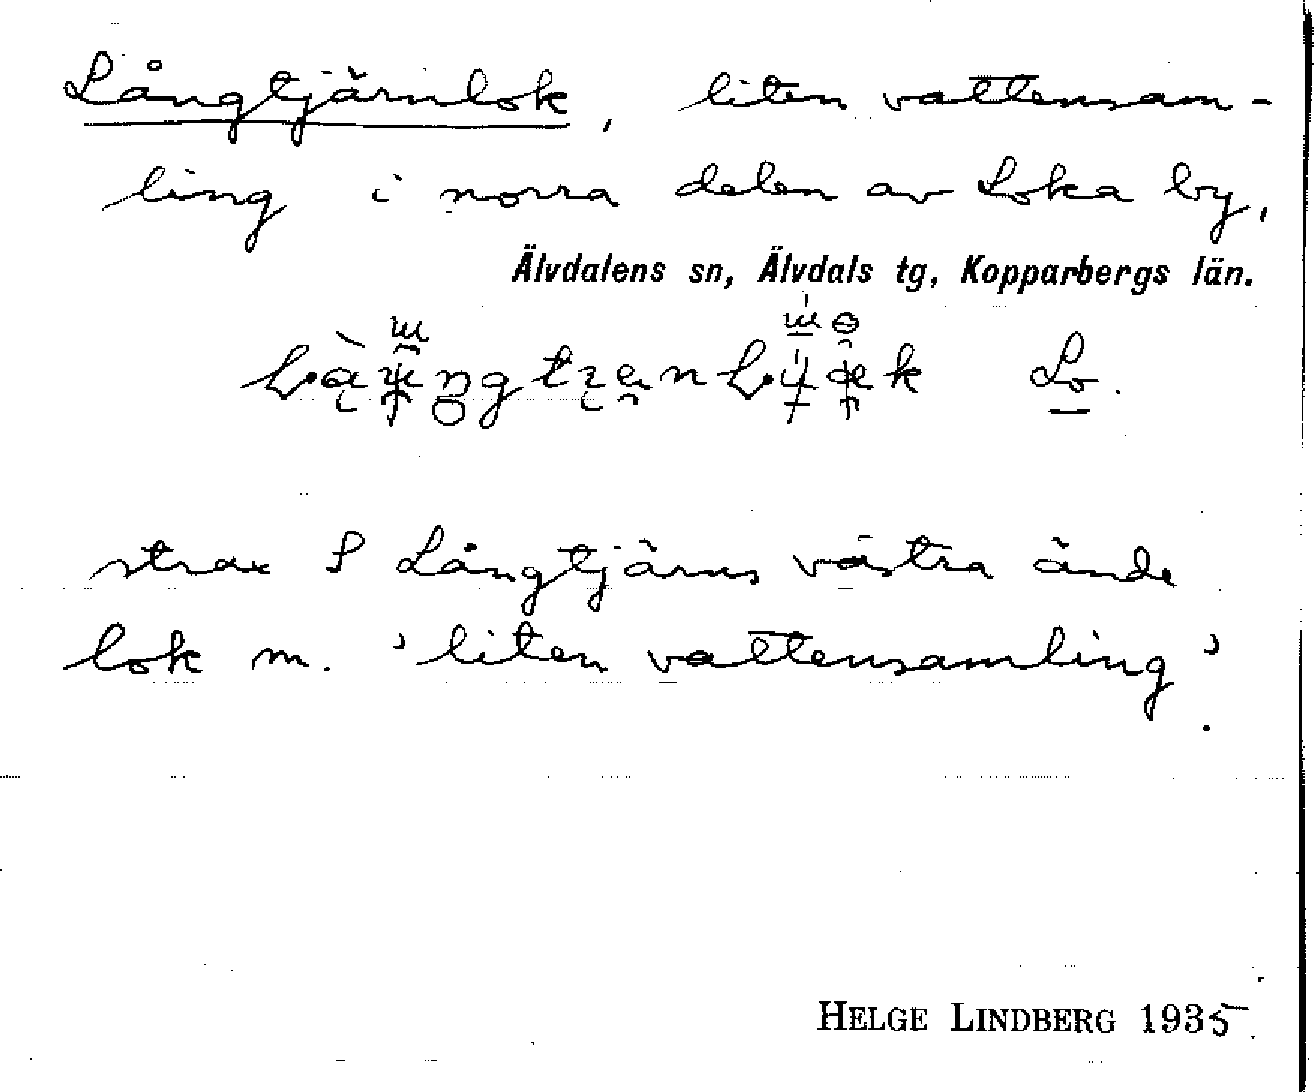 Långtjärnlok, liten vattensam-
ling i norra delen av Loka by,
Älvdalens sn, Älvdals tg, Kopparbergs län.
Lo.
strax S Långtjärns västra ände
lok m. 'liten vattensamling'.
HELGE LINDBERG 1935